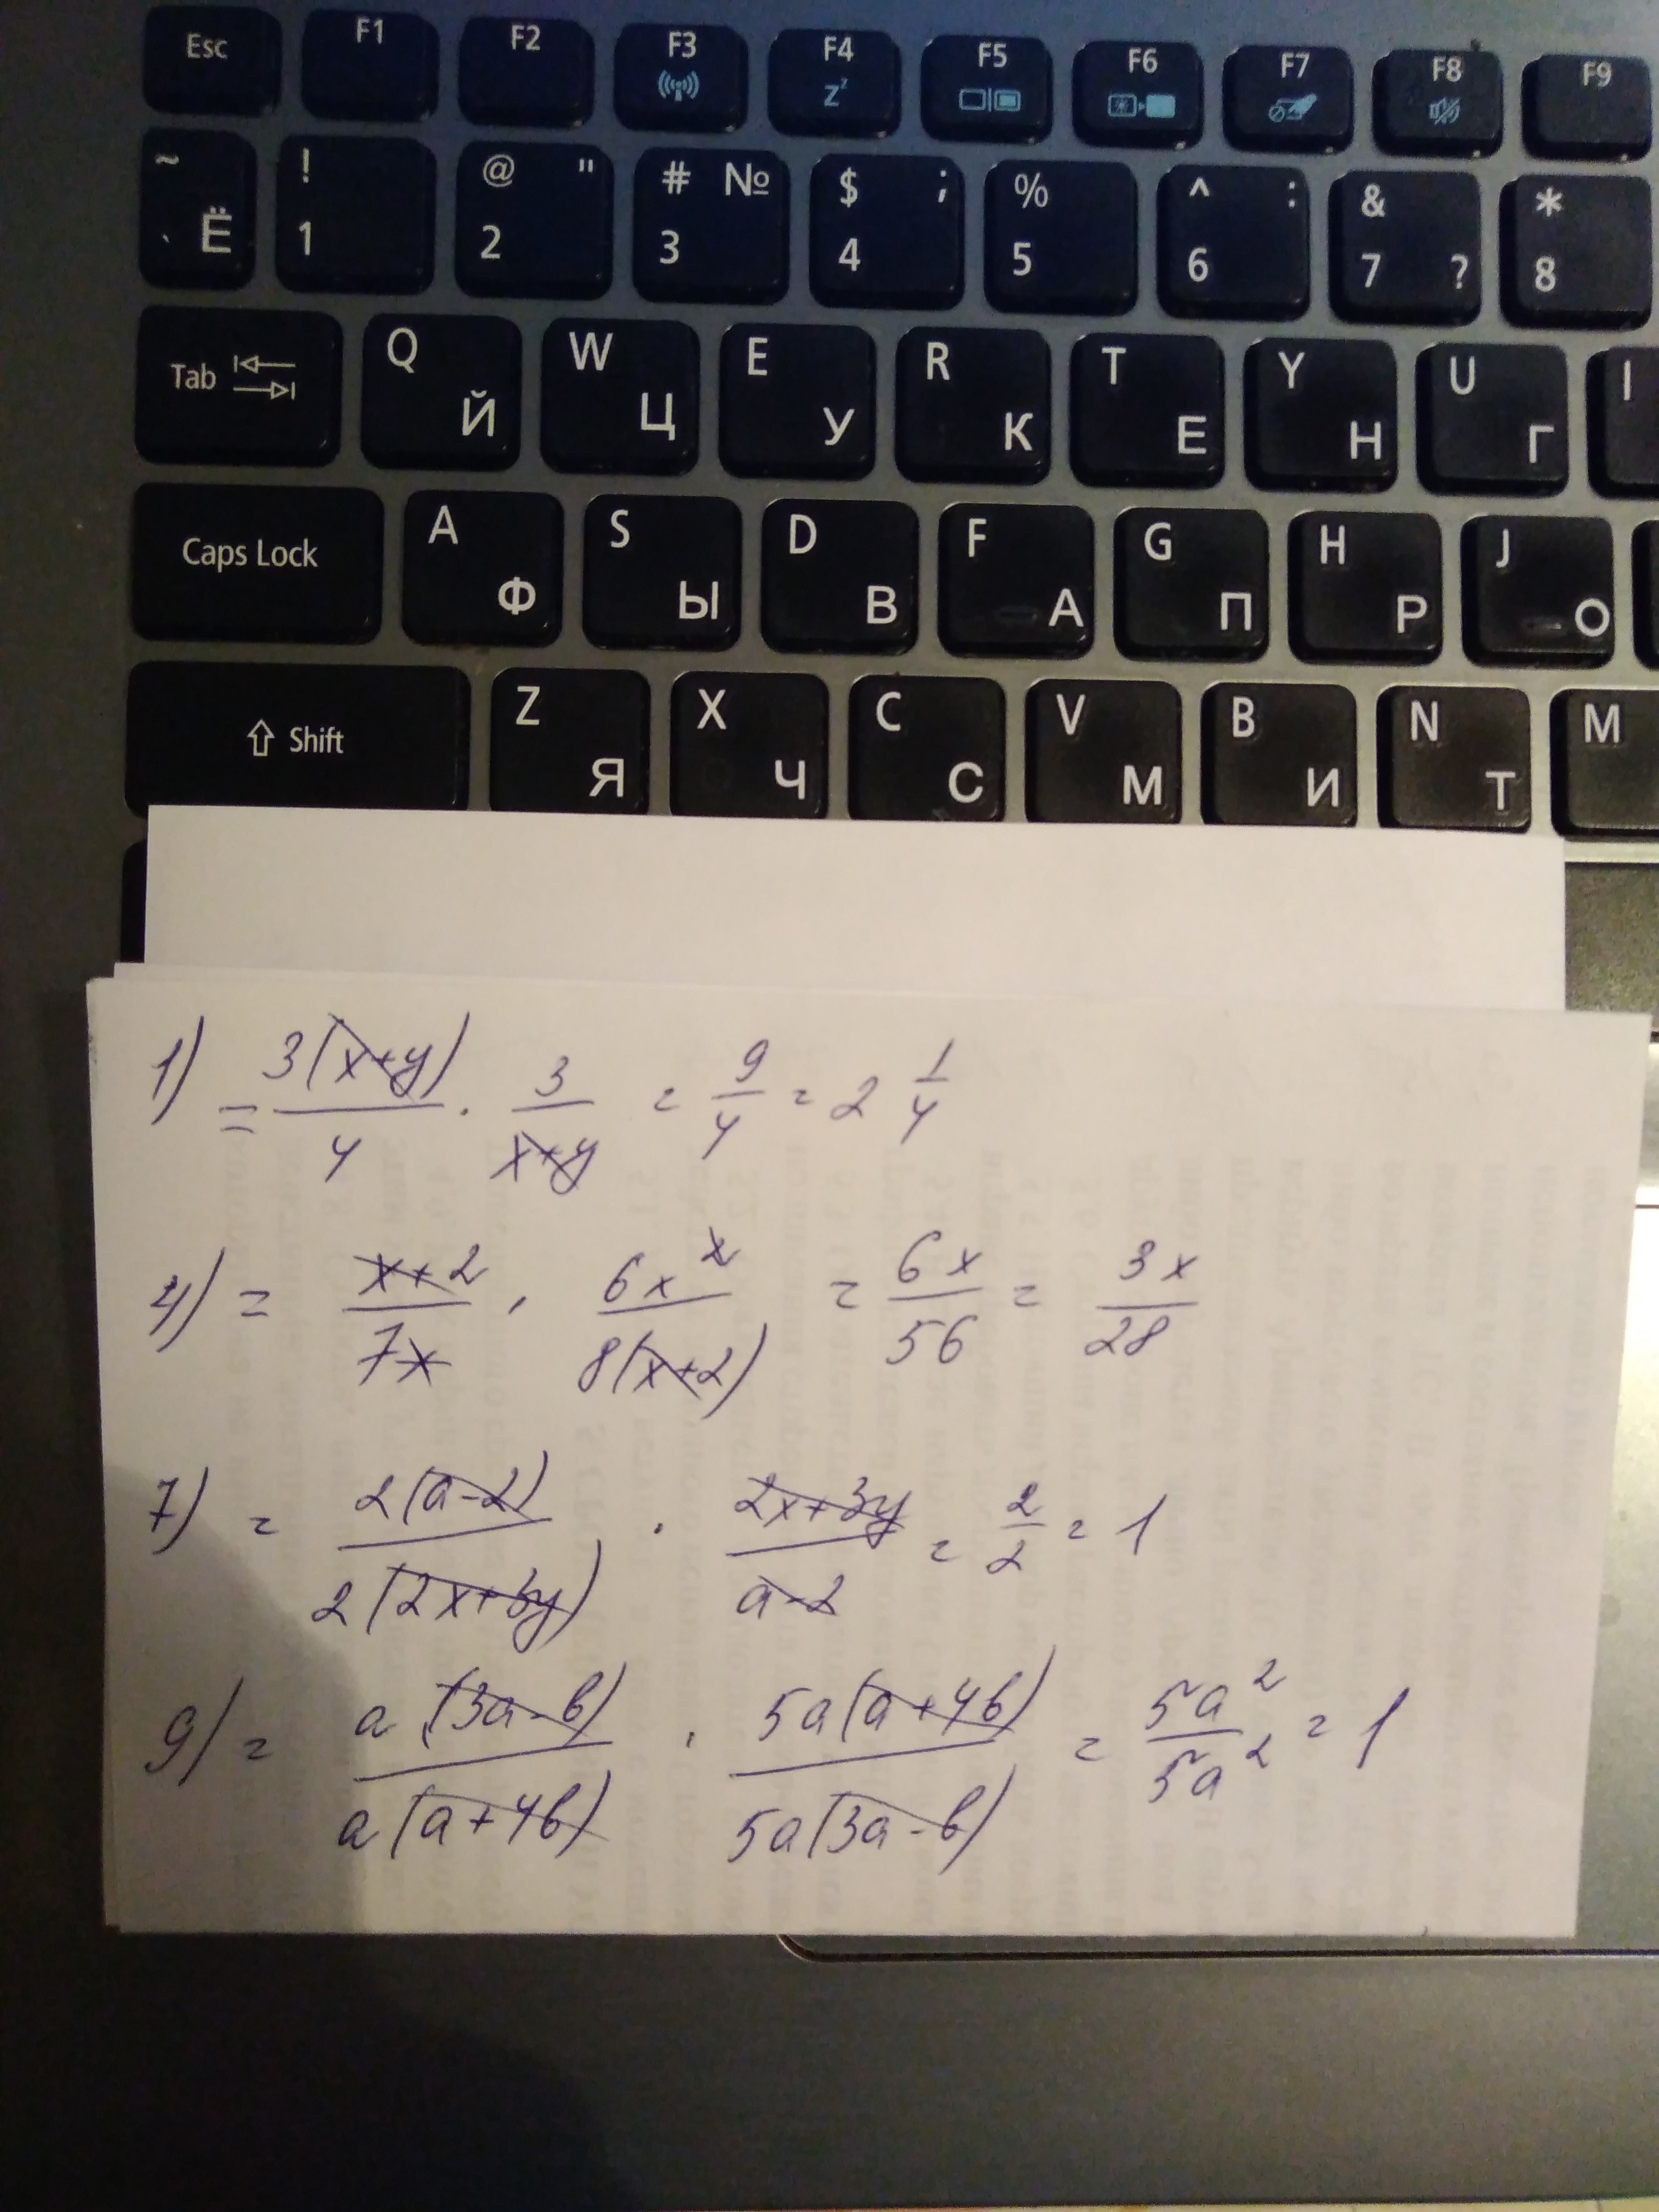 Esc F1 F2 F3 F4 Zz F5 F6 F7 F8 F9
~ ` Ё ! 1 @ " 2 # № 3 $ ; 4 % 5 ^ : 6 & 7 ? * 8
Tab Q Й W Ц E У R К T Е Y Н U Г I
Caps Lock A Ф S Ы D В F А G П H Р J О
Shift Z Я X Ч C С V М B И N Т M
1) = 3(x+y)/4 · 3/(x+y) = 9/4 = 2 1/4
4) = (x+2)/(7x) · 6x²/(8(x+2)) = 6x/56 = 3x/28
7) = 2(a-2)/(2(2x+3y)) · (2x+3y)/(a-2) = 2/2 = 1
9) = a(3a-b)/(a(a+4b)) · 5a(a+4b)/(5a(3a-b)) = 5a²/5a² = 1